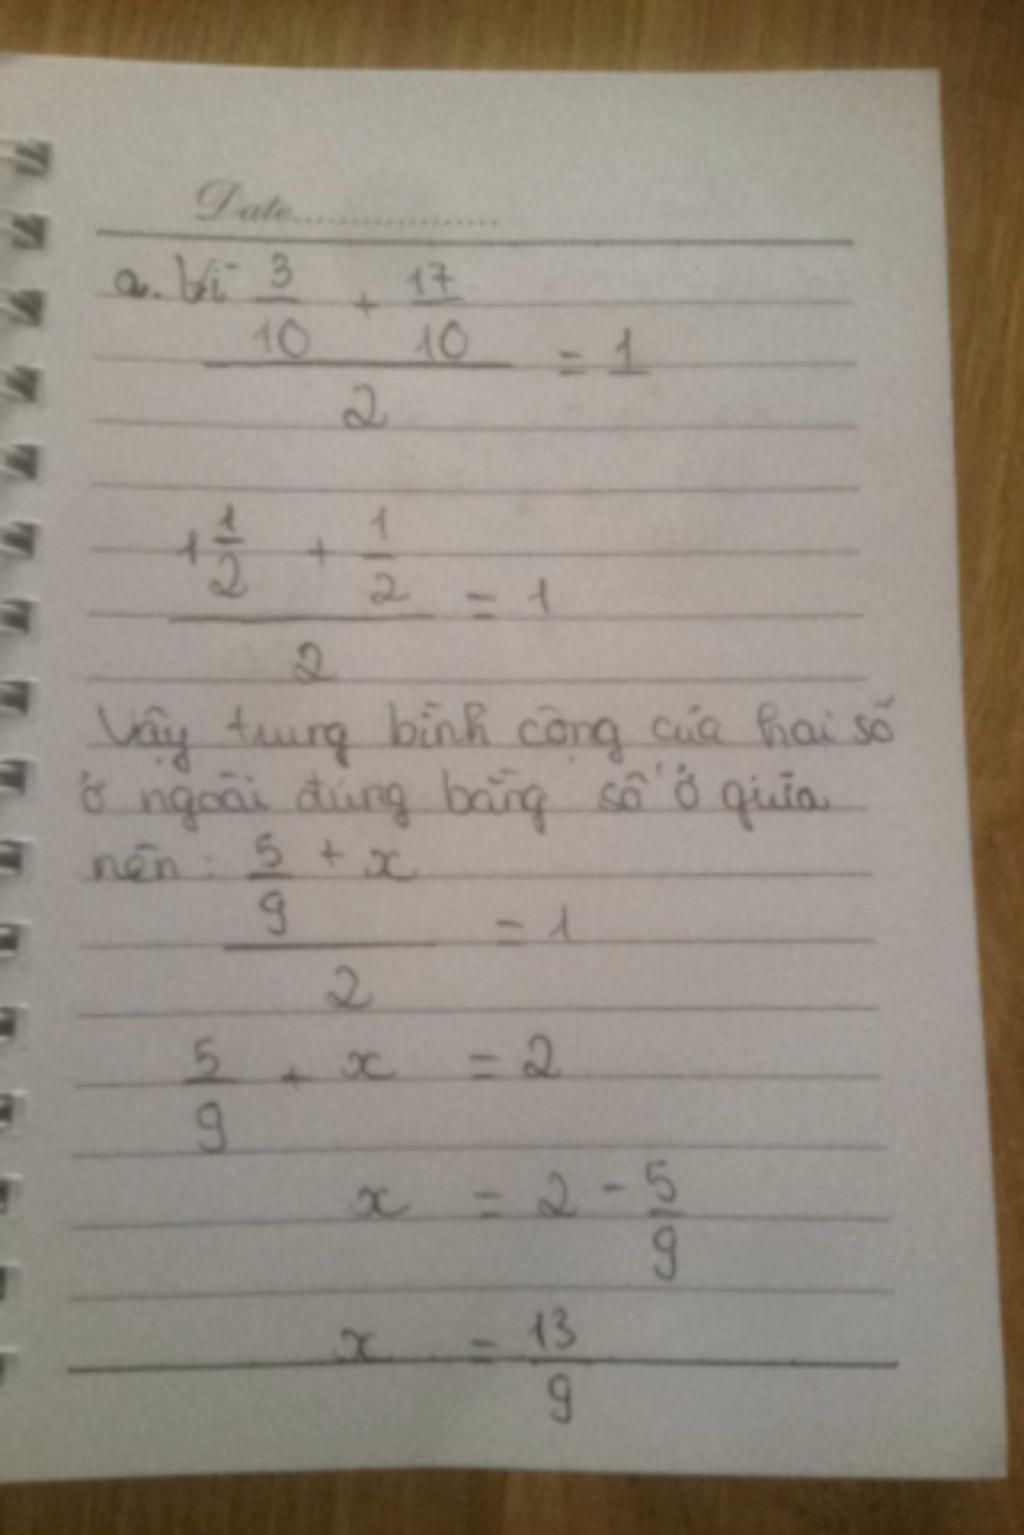 Date..................
a. Vì 3/10 + 17/10
/2 = 1
1 1/2 + 1/2
/2 = 1
Vậy trung bình cộng của hai số
ở ngoài đúng bằng số ở giữa
nên: 5/9 + x
/2 = 1
5/9 + x = 2
x = 2 - 5/9
x = 13/9